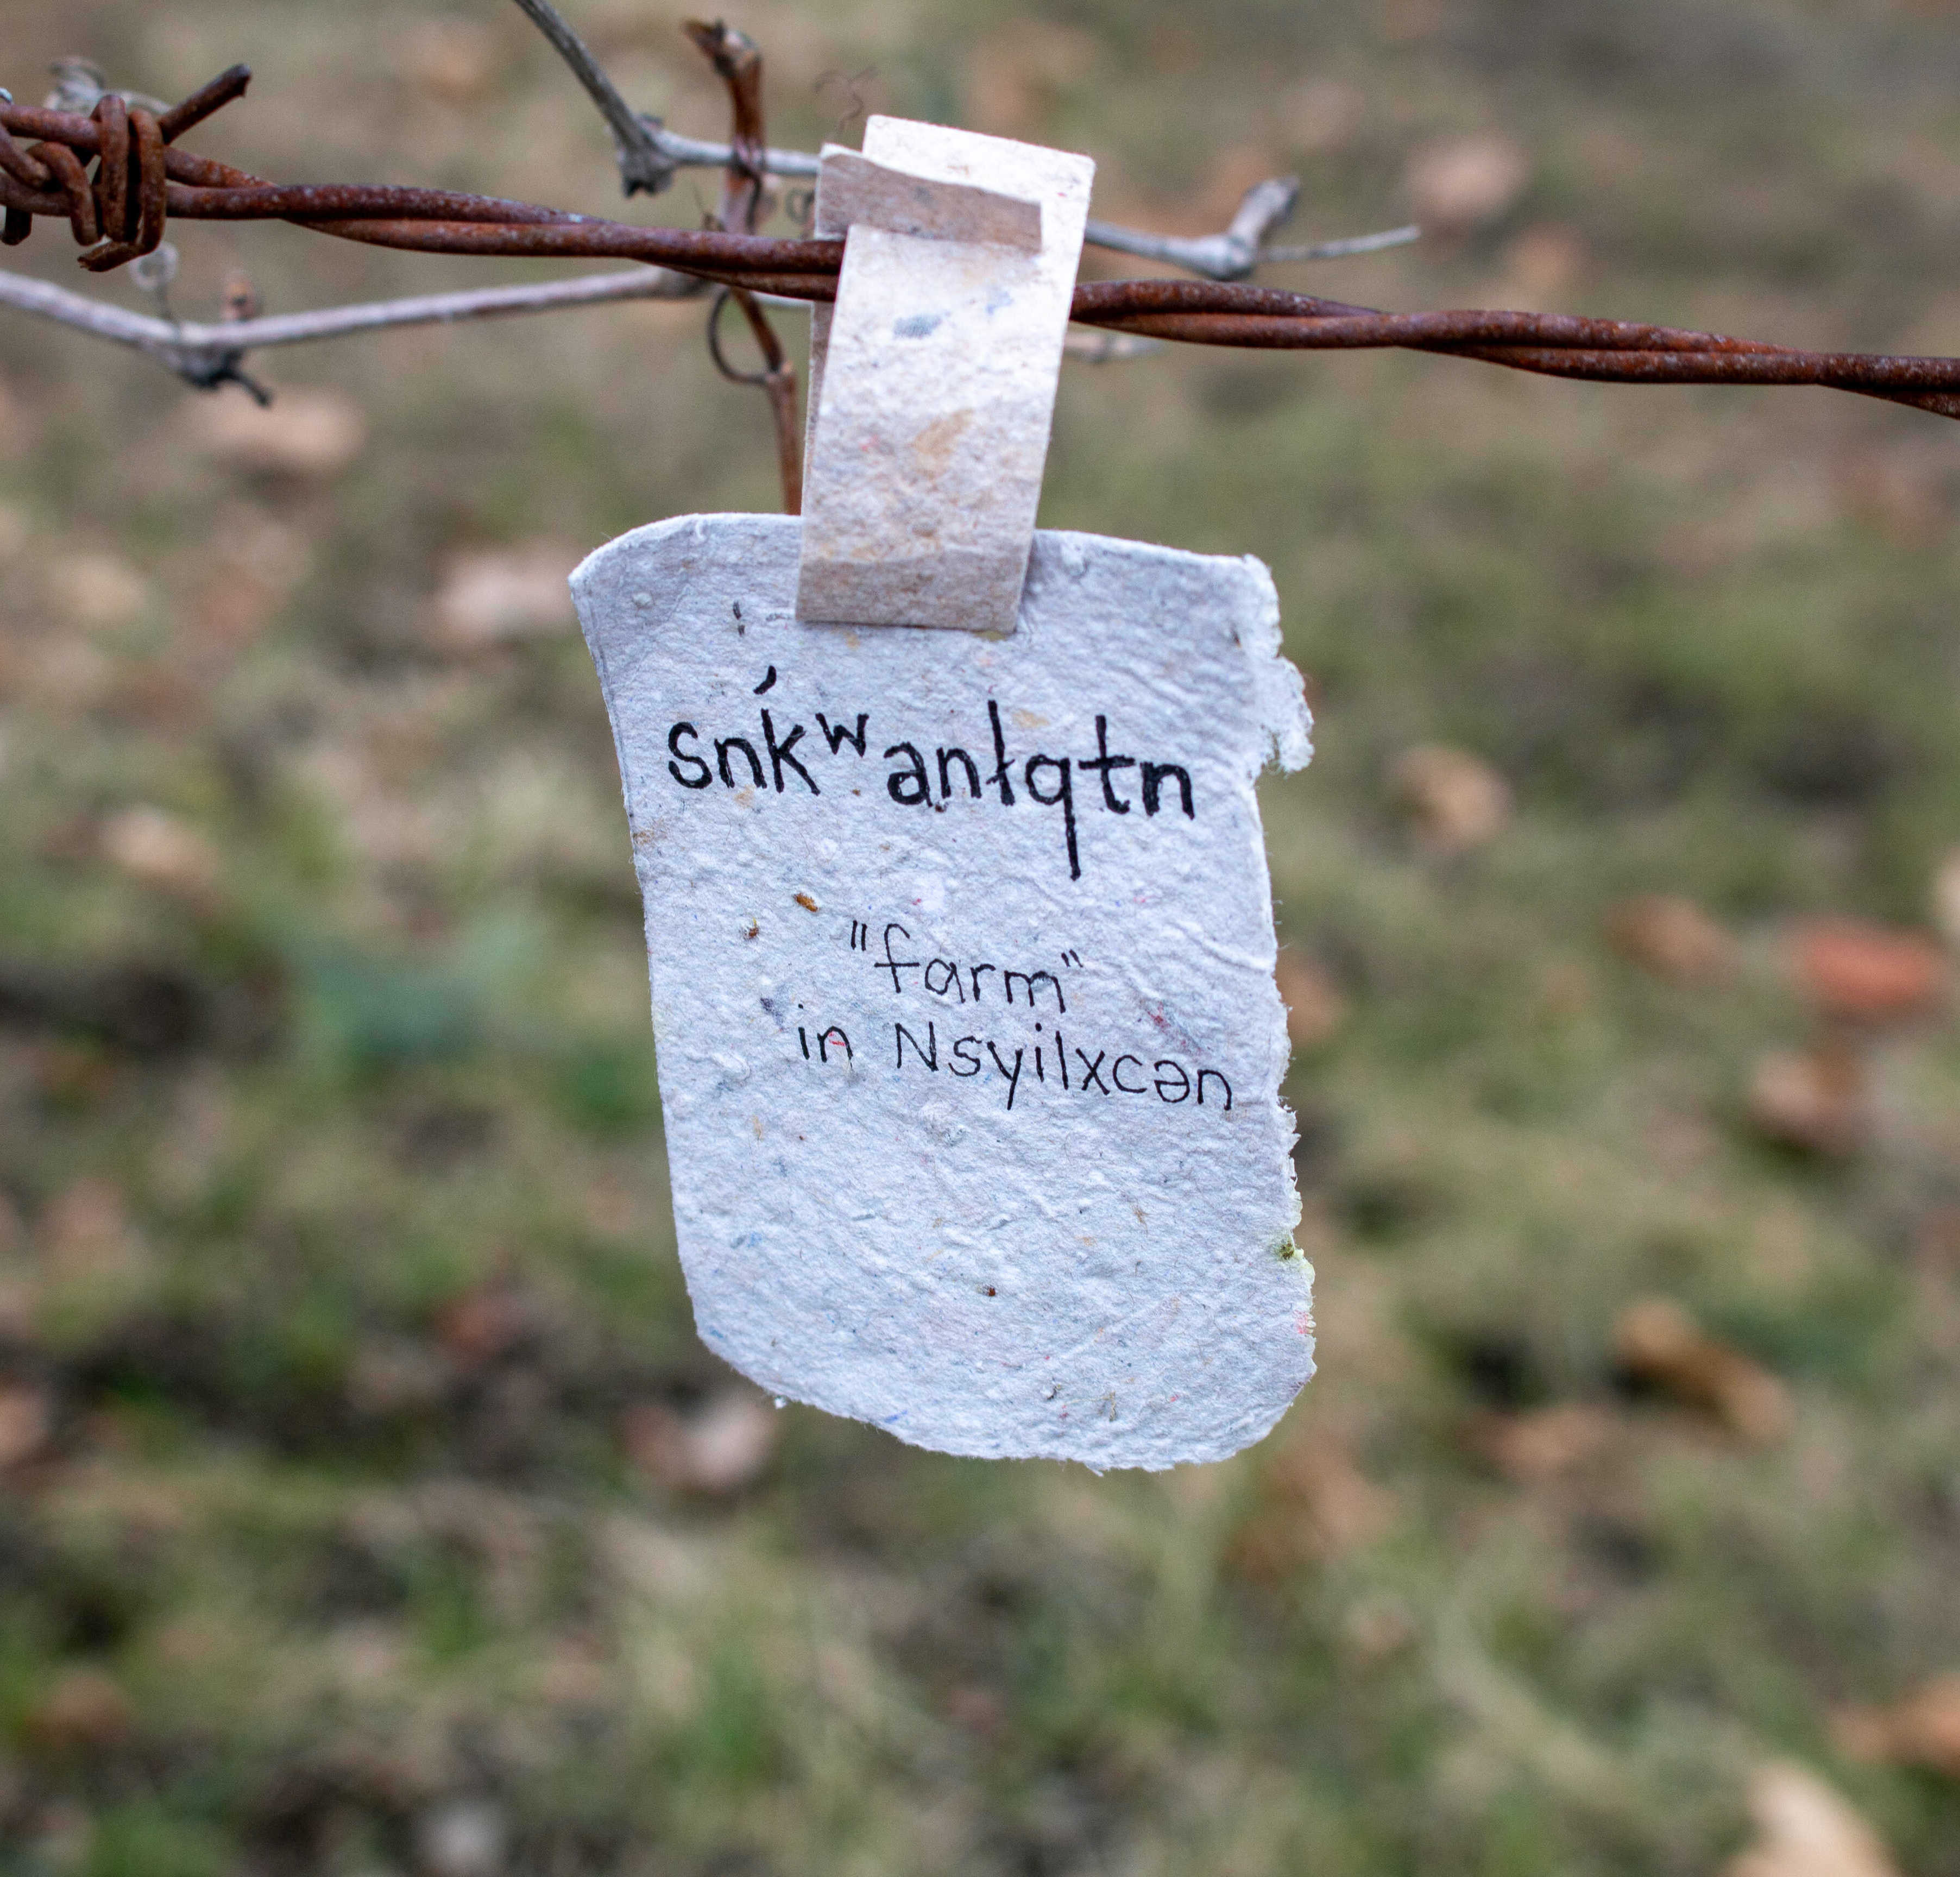 snk̓ʷanłqtn
"farm"
in Nsyilxcən